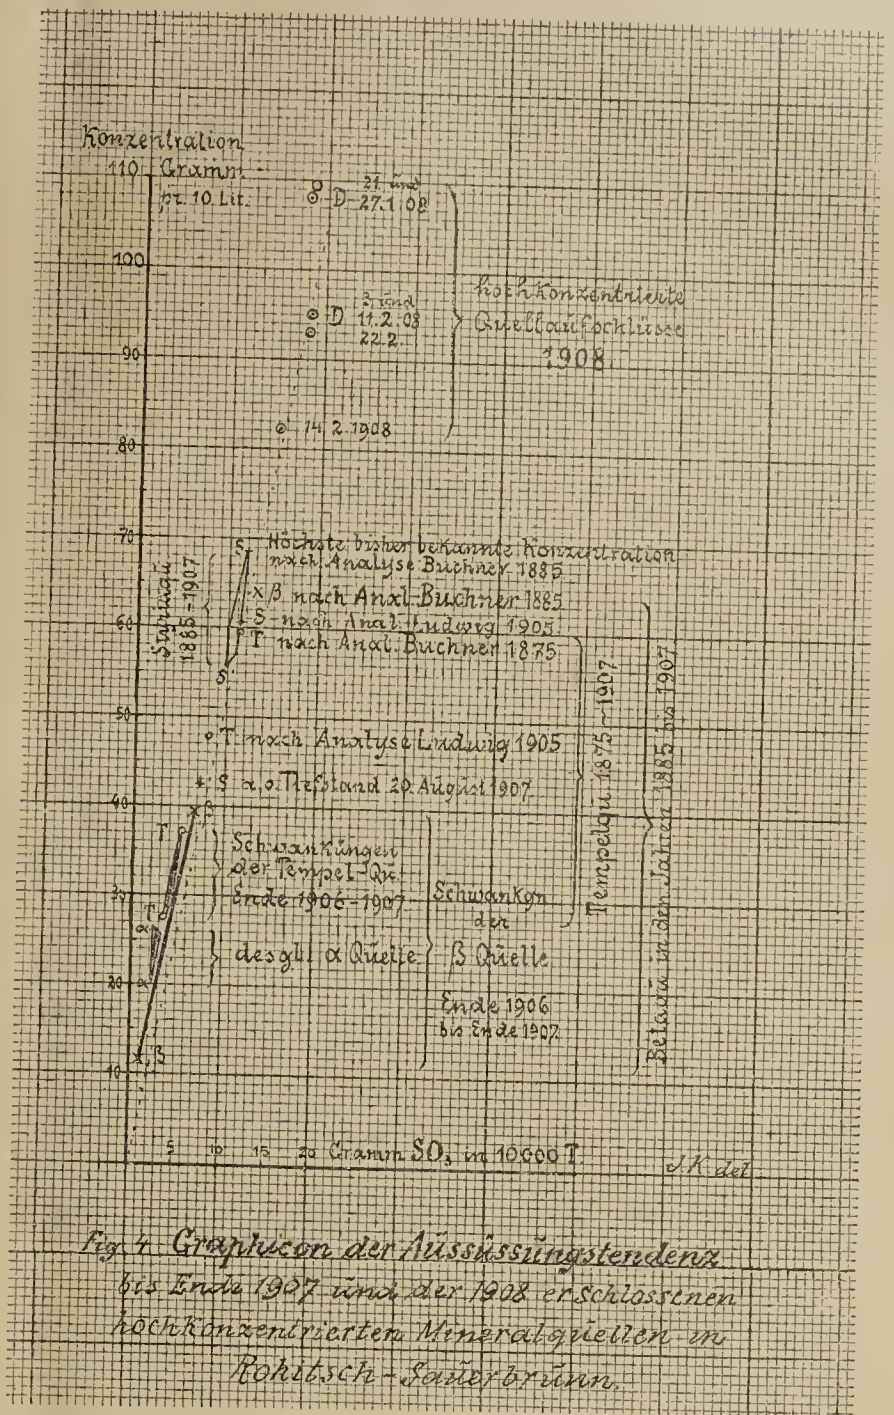 Konzentration
110 Gramm
pr. 10 Lit.
21. und
D 27.1.08
100
2. und
D 11.2.08
22.2.
hochkonzentrierte
Quellaufschlüsse
1908
90
14.2.1908
80
70
S Höchste bisher bekannte Konzentration
nach Analyse Buchner 1885
x β nach Anal. Buchner 1885
60
S nach Anal. Ludwig 1905
T nach Anal. Buchner 1875
S
1885-1907
50
T nach Analyse Ludwig 1905
S a.o. Tiefstand 20. August 1907
40
β
T
Schwankungen
der Tempel-Qu.
Ende 1906-1907
30
T
α
desgl. α Quelle
α
20
Schwankgn
der
β Quelle
Ende 1906
bis Ende 1907
x, β
10
Tempelqu. 1875-1907
Betaqu. in den Jahren 1885 bis 1907
5 10 15 20 Gramm SO₃ in 10.000 T.
J.K. del
Fig. 4 Graphicon der Aussüssungstendenz
bis Ende 1907 und der 1908 erschlossenen
hochkonzentrierten Mineralquellen in
Rohitsch-Sauerbrunn.